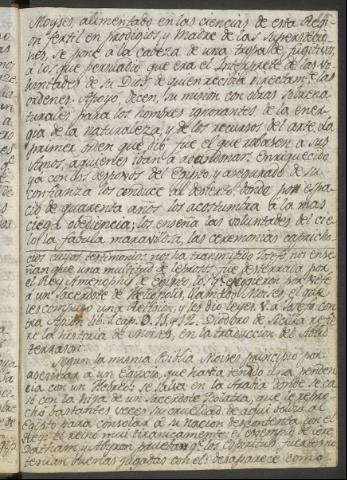 Moyses alimentado en las ciencias de esta Regi-
on fertil en prodigios y Madre de las supersticio-
nes, se pone a la cabeza de una tropa de fugitivos,
a los que persuadió que era el Interprete de las vo-
luntades de su Dios, de quien recibía directam.te las
ordenes. Apoyo, decen, su mision con obras sobrena-
turales para los hombres ignorantes de la ener-
gia de la naturaleza, y de los recursos del arte. La
primer orden que dió fue el que robasen a sus
Amos, a quienes iban a abandonar. Enriquecido
ya con los despojos del Egipto, y asegurado de su
confianza los conduce al desierto, donde por espa-
cio de quarenta años los acostumbra a la mas
ciega obediencia; los enseña las voluntades del cie-
lo, la fabula maravillosa, las ceremonias capricho-
cuyos testimonios nos ha transmitido nos ense-
ñan que una multitud de leprosos fue desterrada por
el Rey Amenophis de Egipto, los que eligieron por Xefe
a un Sacerdote de Heliopolis, llamado Moises el que
les compuso una Religion, y les dio Leyes. V. a Josefo con-
tra Apion lib. 1. cap. 9. 11. y 12. Diodoro de Sicilia refie-
re la historia de Moises, en la traduccion del Abad
Terrason.
Segun la misma Biblia Moises principio por
asesinar a un Egipcio, que havia tenido una penden-
cia con un Hebreo; se salva en la Arabia donde se ca-
só con la hija de un Sacerdote Idolatra, que le repro-
chó bastantes veces su crueldad. de aqui bolvió al
Egipto para consolar a su nacion descontenta con el
Rey. El reynó mui tiranicamente; el exemplo de Core
Dathan, y Abiron prueban q.e los espiritus fuertes no
tenian buenas jugadas con el: desaparece como